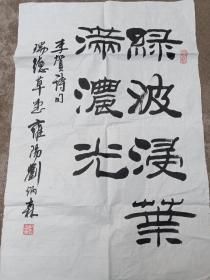 绿波浸葉
滿濃光
李賀詩句
瑞德草書雍陽劉炳森